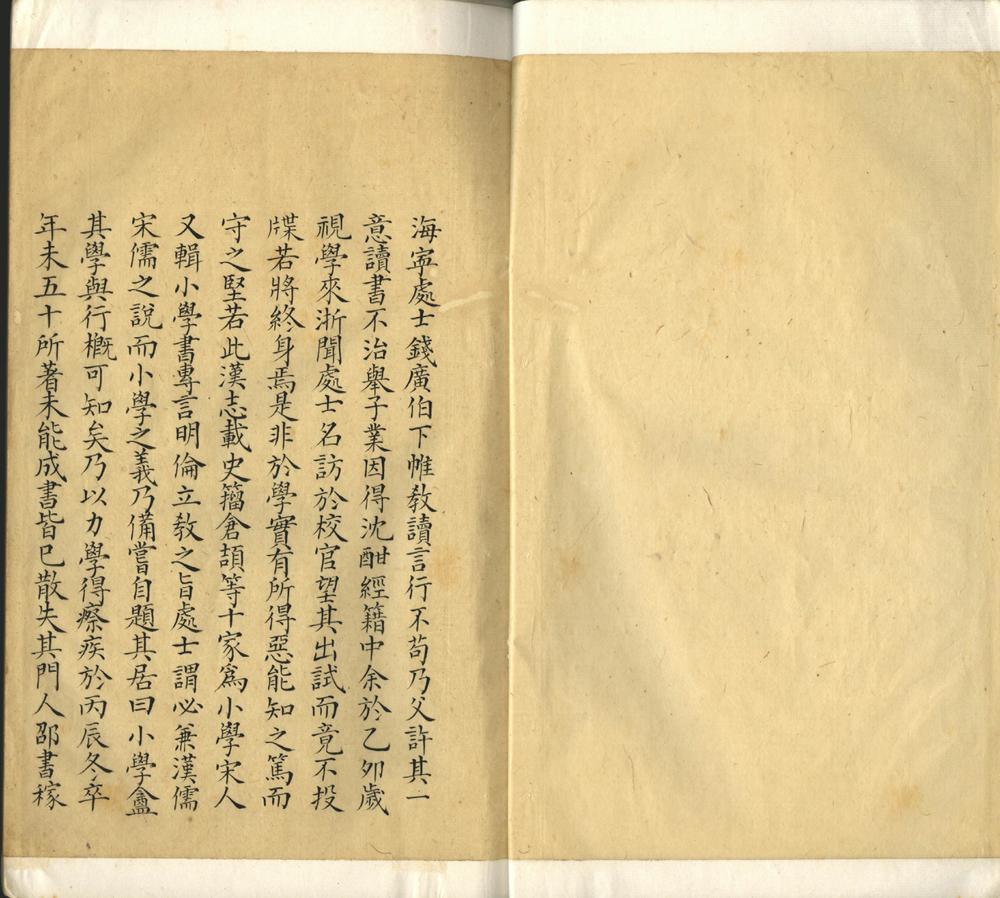 海寧處士錢廣伯下帷教讀言行不苟乃父許其一
意讀書不治舉子業因得沈酣經籍中余於乙卯歲
視學來浙聞處士名訪於校官望其出試而竟不投
牒若將終身焉是非於學實有所得惡能知之篤而
守之堅若此漢志載史籀倉頡等十家為小學宋人
又輯小學書專言明倫立教之旨處士謂必兼漢儒
宋儒之說而小學之義乃備嘗自題其居曰小學盦
其學與行概可知矣乃以力學得瘵疾於丙辰冬卒
年未五十所著未能成書皆已散失其門人邵書稼